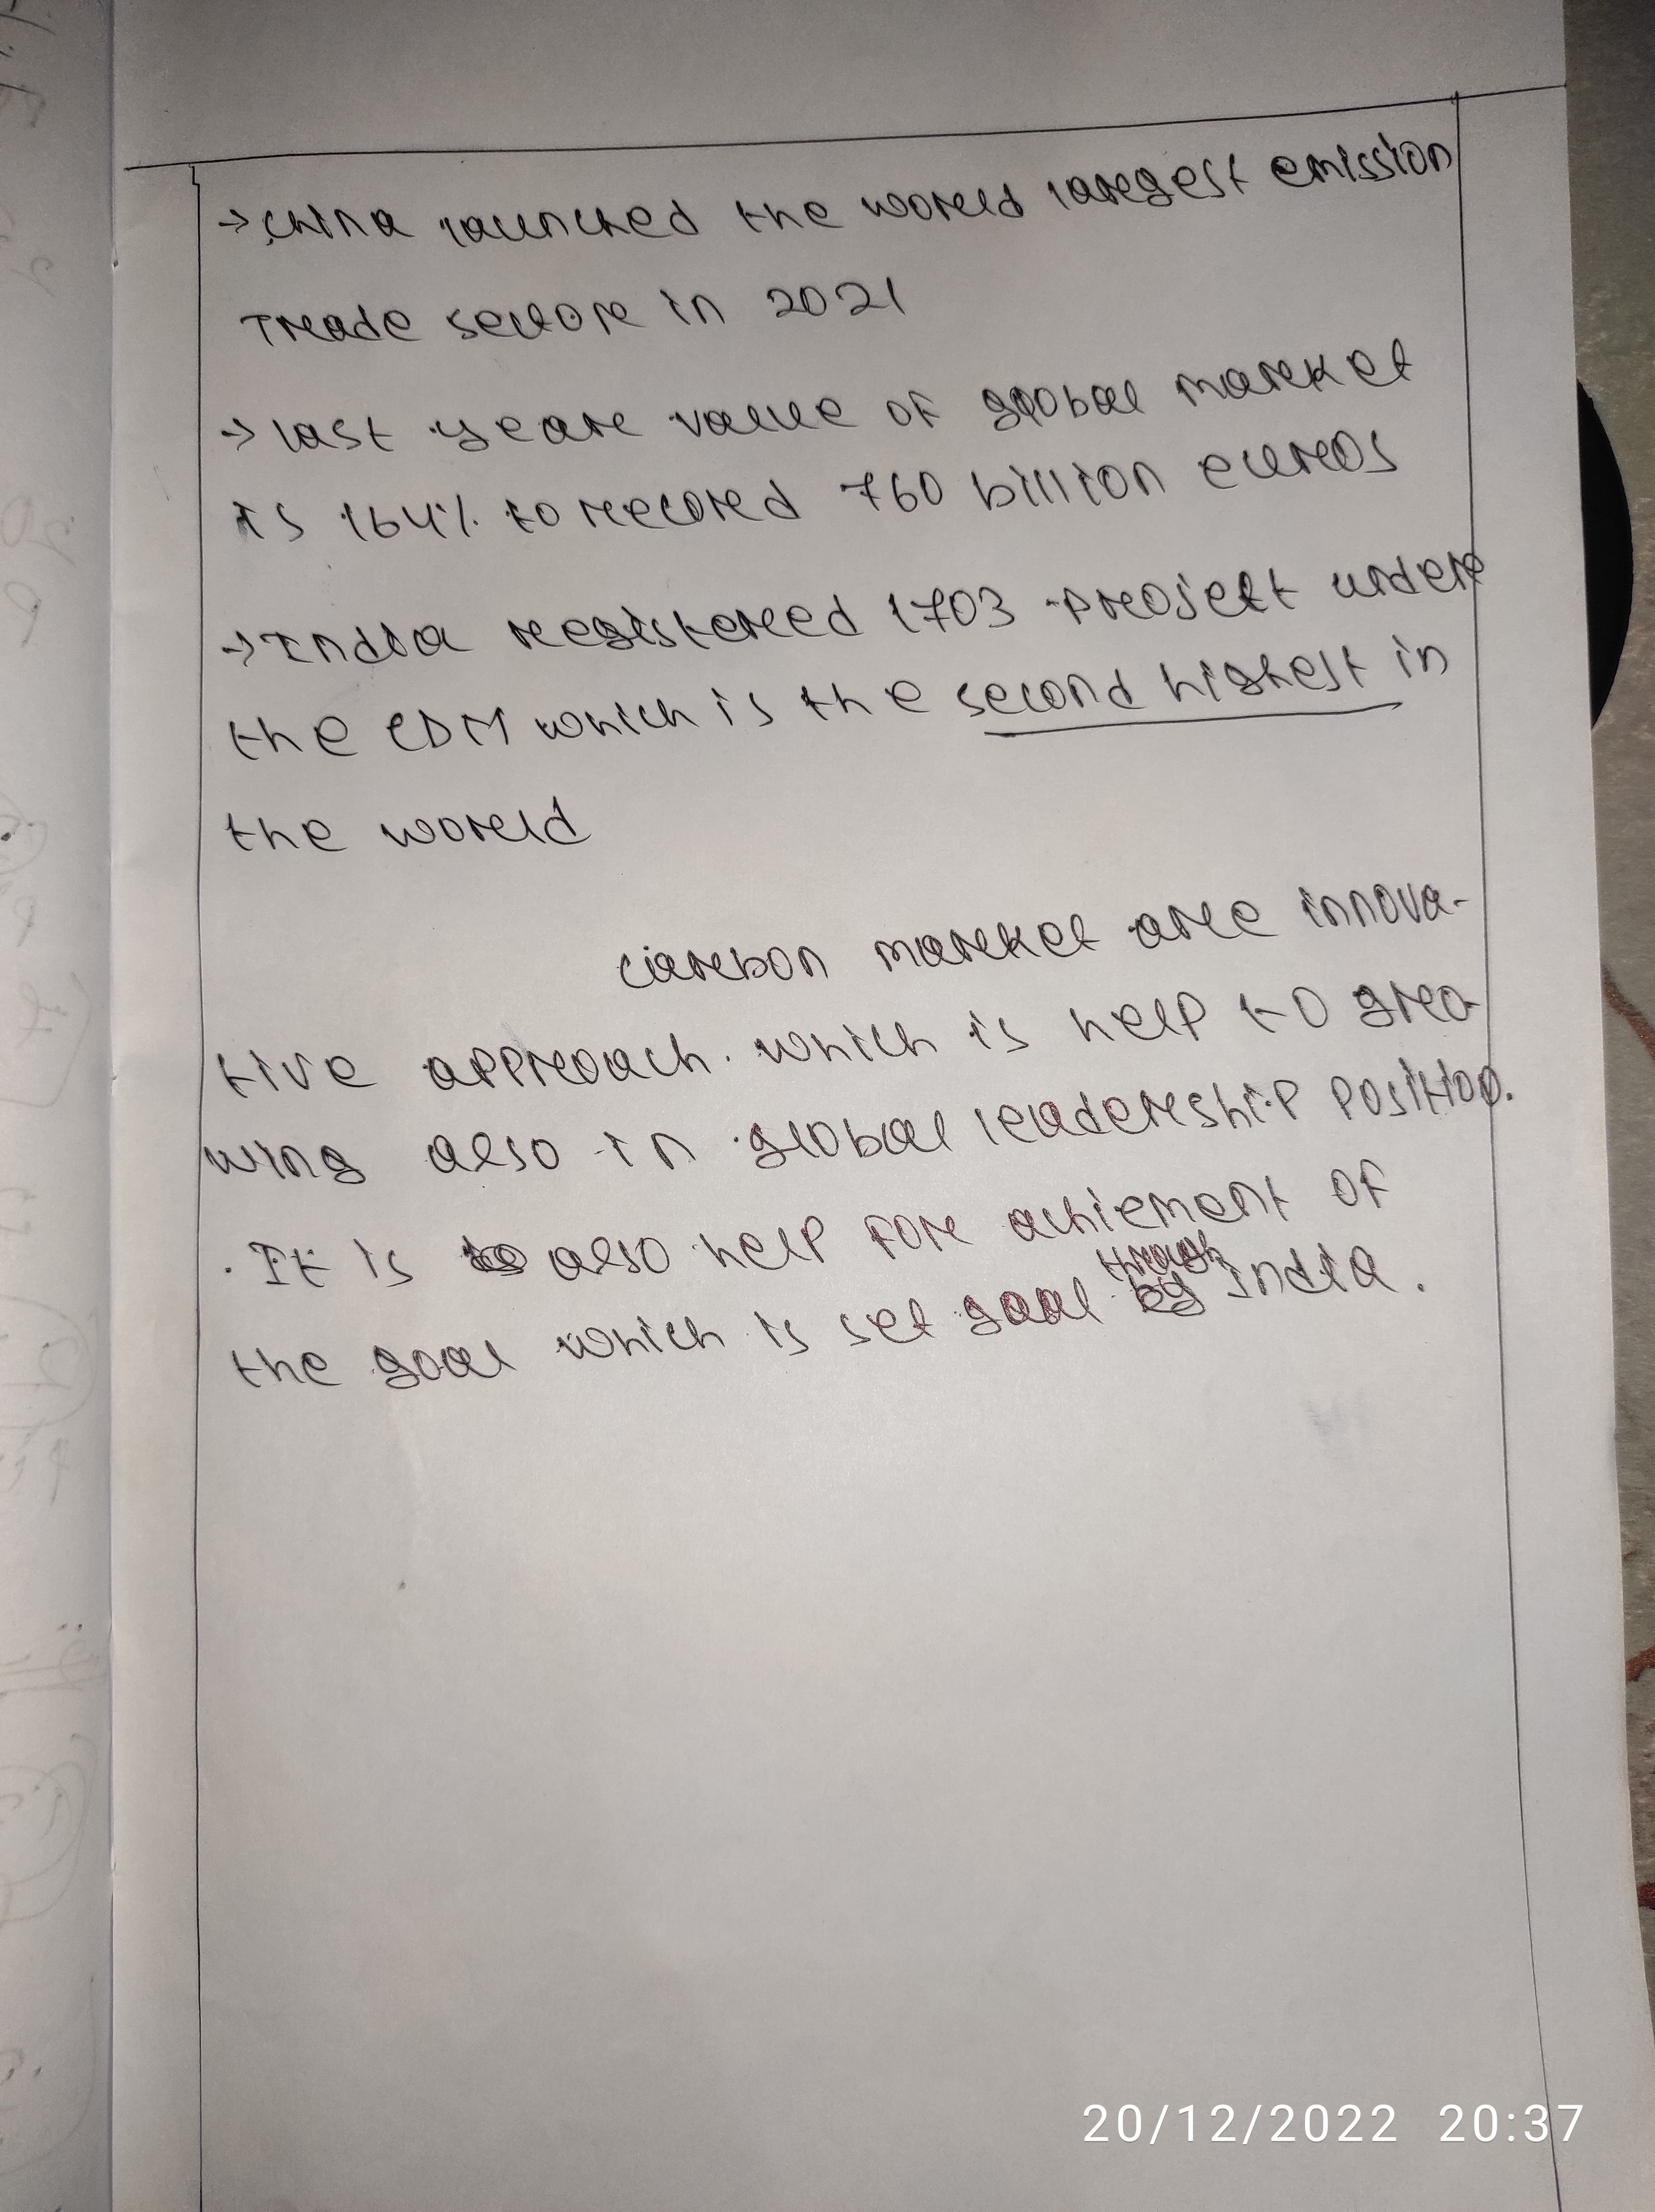 → China launched the world largest emission
Trade sector in 2021
→ last year value of global market
is 164% to record 760 billion euros
→ India registered 1703 project under
the CDM which is the second highest in
the world
Carbon market are innova-
tive approach. which is help to gro-
wing also in global leadership position.
. It is also help for achiement of
the goal which is set goal through India.
20/12/2022 20:37